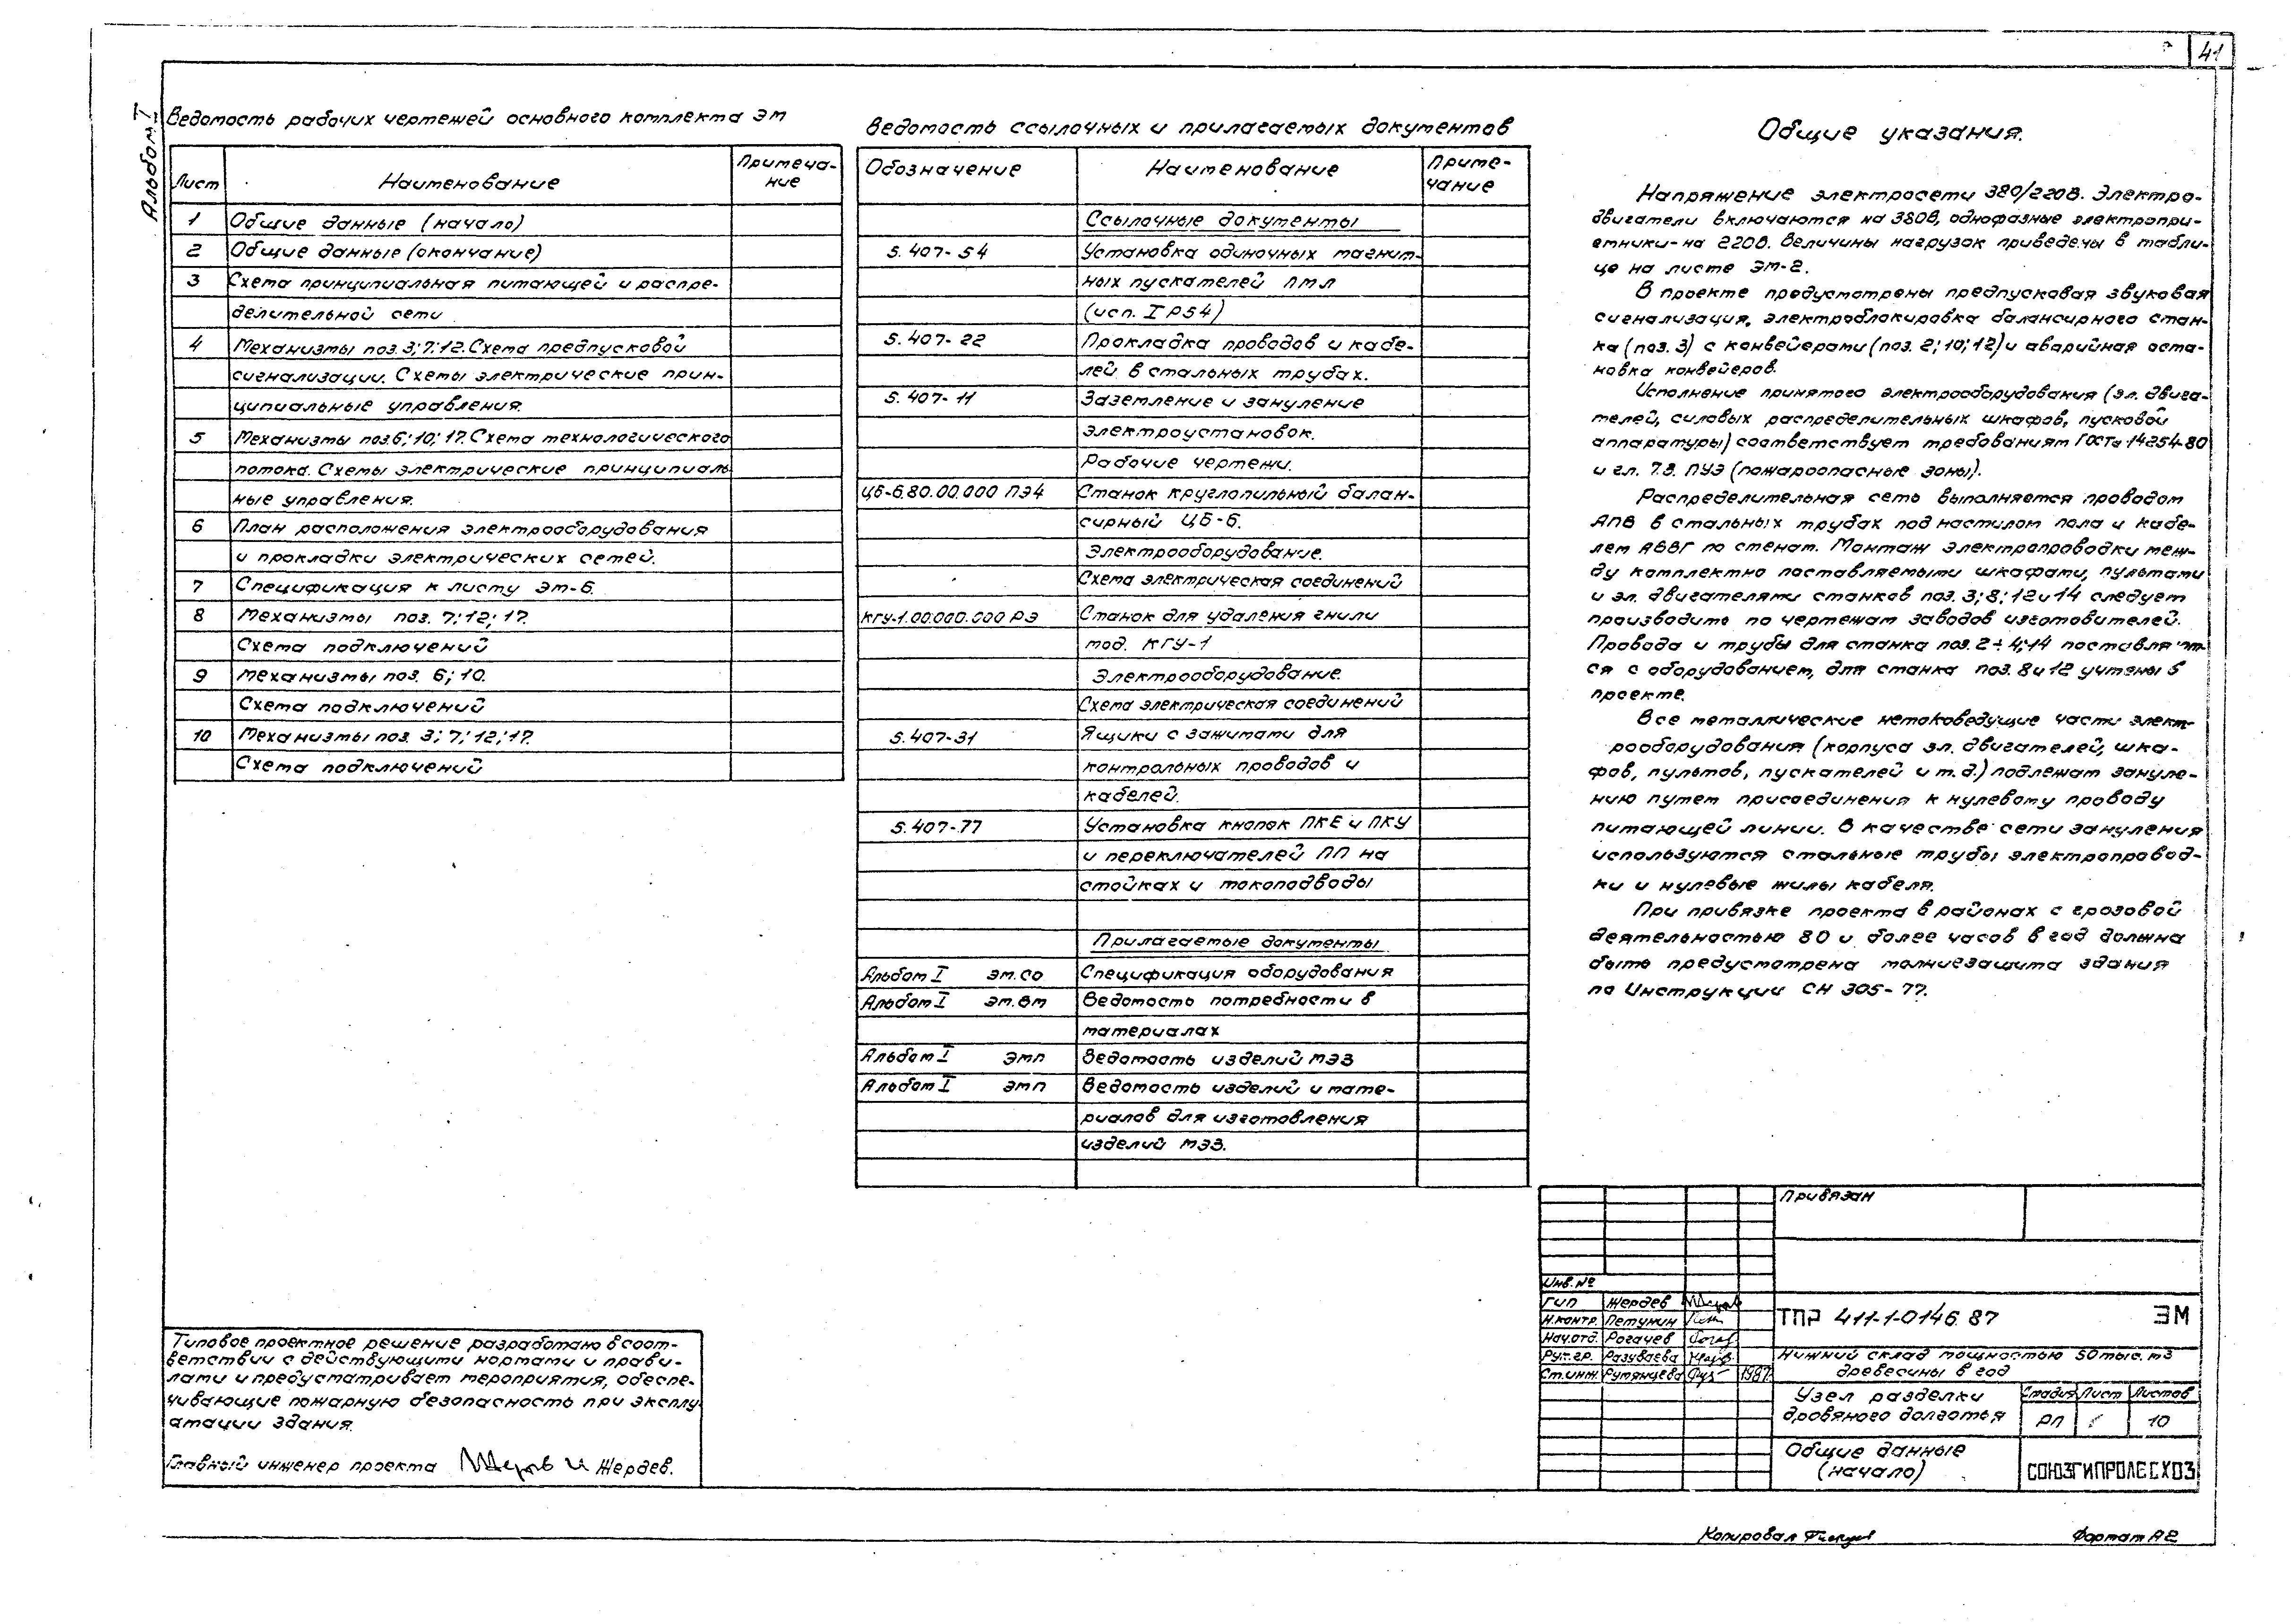 41
Альбом I
Ведомость рабочих чертежей основного комплекта ЭМ
Лист Наименование Примеча-
ние
1 Общие данные (начало)
2 Общие данные (окончание)
3 Схема принципиальная питающей и распре-
делительной сети
4 Механизмы поз. 3; 7; 12. Схема предпусковой
сигнализации. Схемы электрические прин-
ципиальные управления.
5 Механизмы поз. 6; 10; 17. Схема технологического
потока. Схемы электрические принципиаль
ные управления.
6 План расположения электрооборудования
и прокладки электрических сетей.
7 Спецификация к листу ЭМ-6.
8 Механизмы поз. 7; 12; 17.
Схема подключений
9 Механизмы поз. 6; 10.
Схема подключений
10 Механизмы поз. 3; 7; 12; 17.
Схема подключений
Ведомость ссылочных и прилагаемых документов
Обозначение Наименование Приме-
чание
Ссылочные документы
5.407-54 Установка одиночных магнит-
ных пускателей ПМЛ
(исп. IP54)
5.407-22 Прокладка проводов и кабе-
лей в стальных трубах.
5.407-11 Заземление и зануление
электроустановок.
Рабочие чертежи.
ЦБ-6.80.00.000 ПЭ4 Станок круглопильный балан-
сирный ЦБ-6.
Электрооборудование.
Схема электрическая соединений
КГУ-1.00.000.000 РЭ Станок для удаления гнили
мод. КГУ-1
Электрооборудование.
Схема электрическая соединений
5.407-31 Ящики с зажимами для
контрольных проводов и
кабелей.
5.407-77 Установка кнопок ПКЕ и ПКУ
и переключателей ПП на
стойках и токоподводы
Прилагаемые документы
Альбом I ЭМ.СО Спецификация оборудования
Альбом I ЭМ.ВМ Ведомость потребности в
материалах
Альбом I ЭМП Ведомость изделий МЭЗ
Альбом I ЭМП Ведомость изделий и мате-
риалов для изготовления
изделий МЭЗ.
Общие указания.
Напряжение электросети 380/220В. Электро-
двигатели включаются на 380В, однофазные электропри-
емники-на 220В. Величины нагрузок приведены в табли-
це на листе ЭМ-2.
В проекте предусмотрены предпусковая звуковая
сигнализация, электроблокировка балансирного стан-
ка (поз. 3) с конвейерами (поз. 2; 10; 12) и аварийная оста-
новка конвейеров.
Исполнение принятого электрооборудования (эл. двига-
телей, силовых распределительных шкафов, пусковой
аппаратуры) соответствует требованиям ГОСТа 14254-80
и гл. 7.3. ПУЭ (пожароопасные зоны).
Распределительная сеть выполняется проводом
АПВ в стальных трубах под настилом пола и кабе-
лем АВВГ по стенам. Монтаж электропроводки меж-
ду комплектно поставляемыми шкафами, пультами
и эл. двигателями станков поз. 3; 8; 12 и 14 следует
производить по чертежам заводов изготовителей.
Провода и трубы для станка поз. 2÷4; 14 поставляют
ся с оборудованием, для станка поз. 8 и 12 учтены в
проекте.
Все металлические нетоковедущие части элект-
рооборудования (корпуса эл. двигателей, шка-
фов, пультов, пускателей и т.д.) подлежат зануле-
нию путем присоединения к нулевому проводу
питающей линии. В качестве сети зануления
используются стальные трубы электропровод-
ки и нулевые жилы кабеля.
При привязке проекта в районах с грозовой
деятельностью 80 и более часов в год должна
быть предусмотрена молниезащита здания
по Инструкции СН 305-77.
Типовое проектное решение разработано в соот-
ветствии с действующими нормами и прави-
лами и предусматривает мероприятия, обеспе-
чивающие пожарную безопасность при эксплу
атации здания.
Главный инженер проекта Жердев.
Привязан
Инв. №
ГИП Жердев
Н.контр. Петунин
Нач.отд. Рогачев
Рук.гр. Разуваева
Ст.инж. Румянцева 1987
ТПР 411-1-0146.87 ЭМ
Нижний склад мощностью 50 тыс. м3
древесины в год
Узел разделки
дровяного долготья
Стадия Лист Листов
РП 10
Общие данные
(начало)
СОЮЗГИПРОЛЕСХОЗ
Копировал
Формат А2